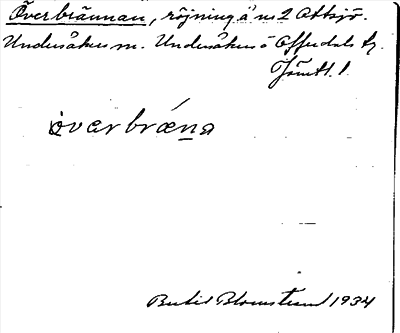 Överbrännan, röjning å nr 2 Ottsjö.
Undersåkers sn. Undersåkers o Offerdals tg.
Jämtl. l.
òvarbrǽna
Bertil Blomstrand 1934